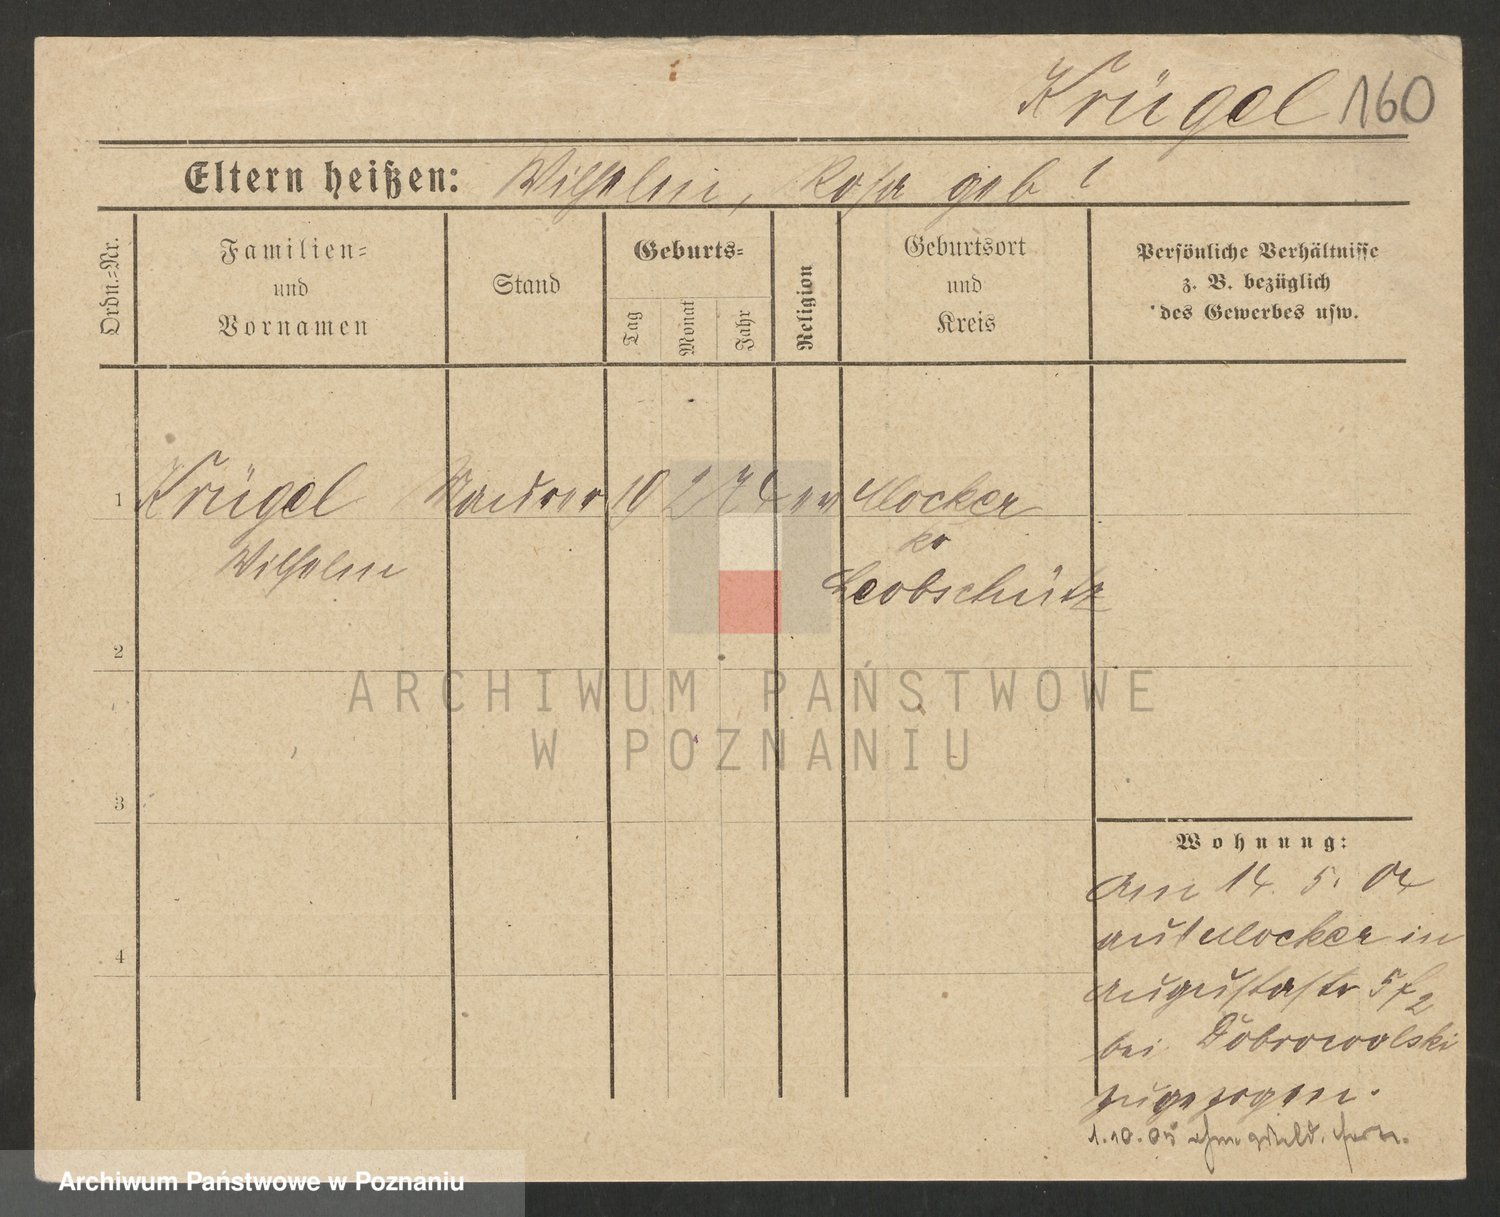 Krügel 160
Eltern heißen: Wilhelm, Rosa geb ?
Ordn.-Nr.
Familien-
und
Vornamen
Stand
Geburts-
Tag
Monat
Jahr
Religion
Geburtsort
und
Kreis
Persönliche Verhältnisse
z. B. bezüglich
des Gewerbes usw.
1 Krügel 19 2 74 Mocker
Wilhelm
Kr
Leobschütz
2
3
4
ARCHIWUM PAŃSTWOWE
W POZNANIU
Wohnung:
Am 14. 5. 04
aus Mocker in
Augustastr 5
bei Dobrowolski
zugezogen.
1.10.05
Archiwum Państwowe w Poznaniu